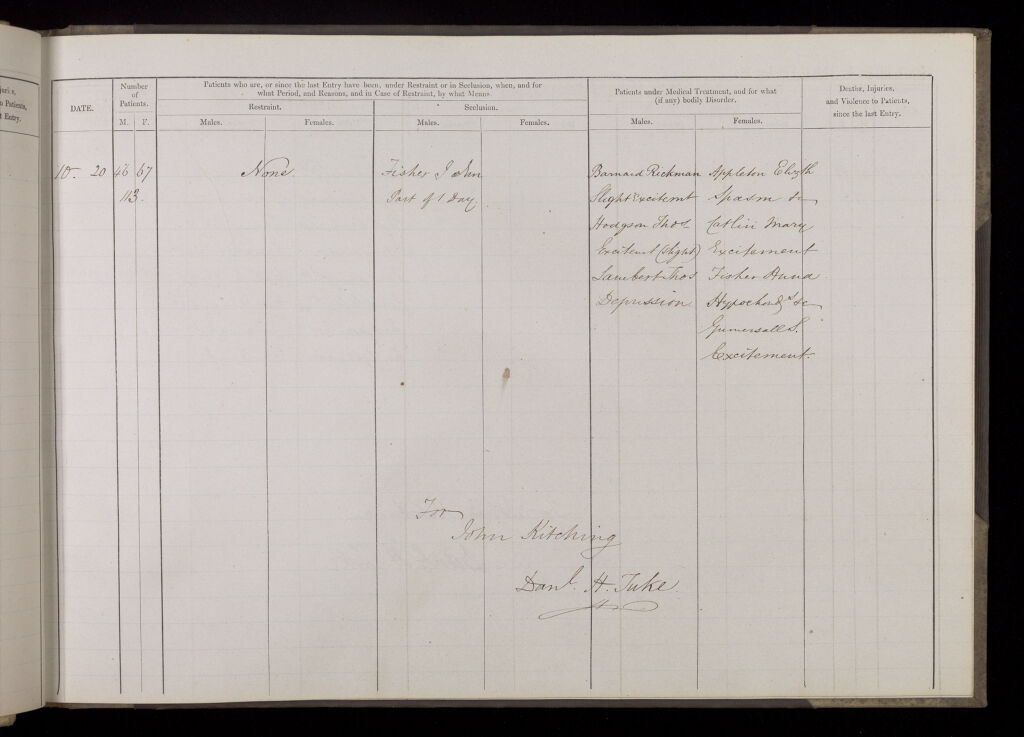 juries,
n Patients,
t Entry.
DATE.
Number
of
Patients.
M. F.
Patients who are, or since the last Entry have been, under Restraint or in Seclusion, when, and for
what Period, and Reasons, and in Case of Restraint, by what Means.
Restraint. Seclusion.
Males. Females. Males. Females.
Patients under Medical Treatment, and for what
(if any) bodily Disorder.
Males. Females.
Deaths, Injuries,
and Violence to Patients,
since the last Entry.
10. 20 46 67 None. Fisher John Barnard Rickman Appleton Elizth
113. Part of 1 Day. Slight Excitemt Spasm &c
Hodgson Thos Catlin Mary
Excitemt (slight) Excitement
Lambert Thos Fisher Anna
Depression Hypochondrs &c
S.
Excitement.
For
John Kitching
Danl. H. Tuke.